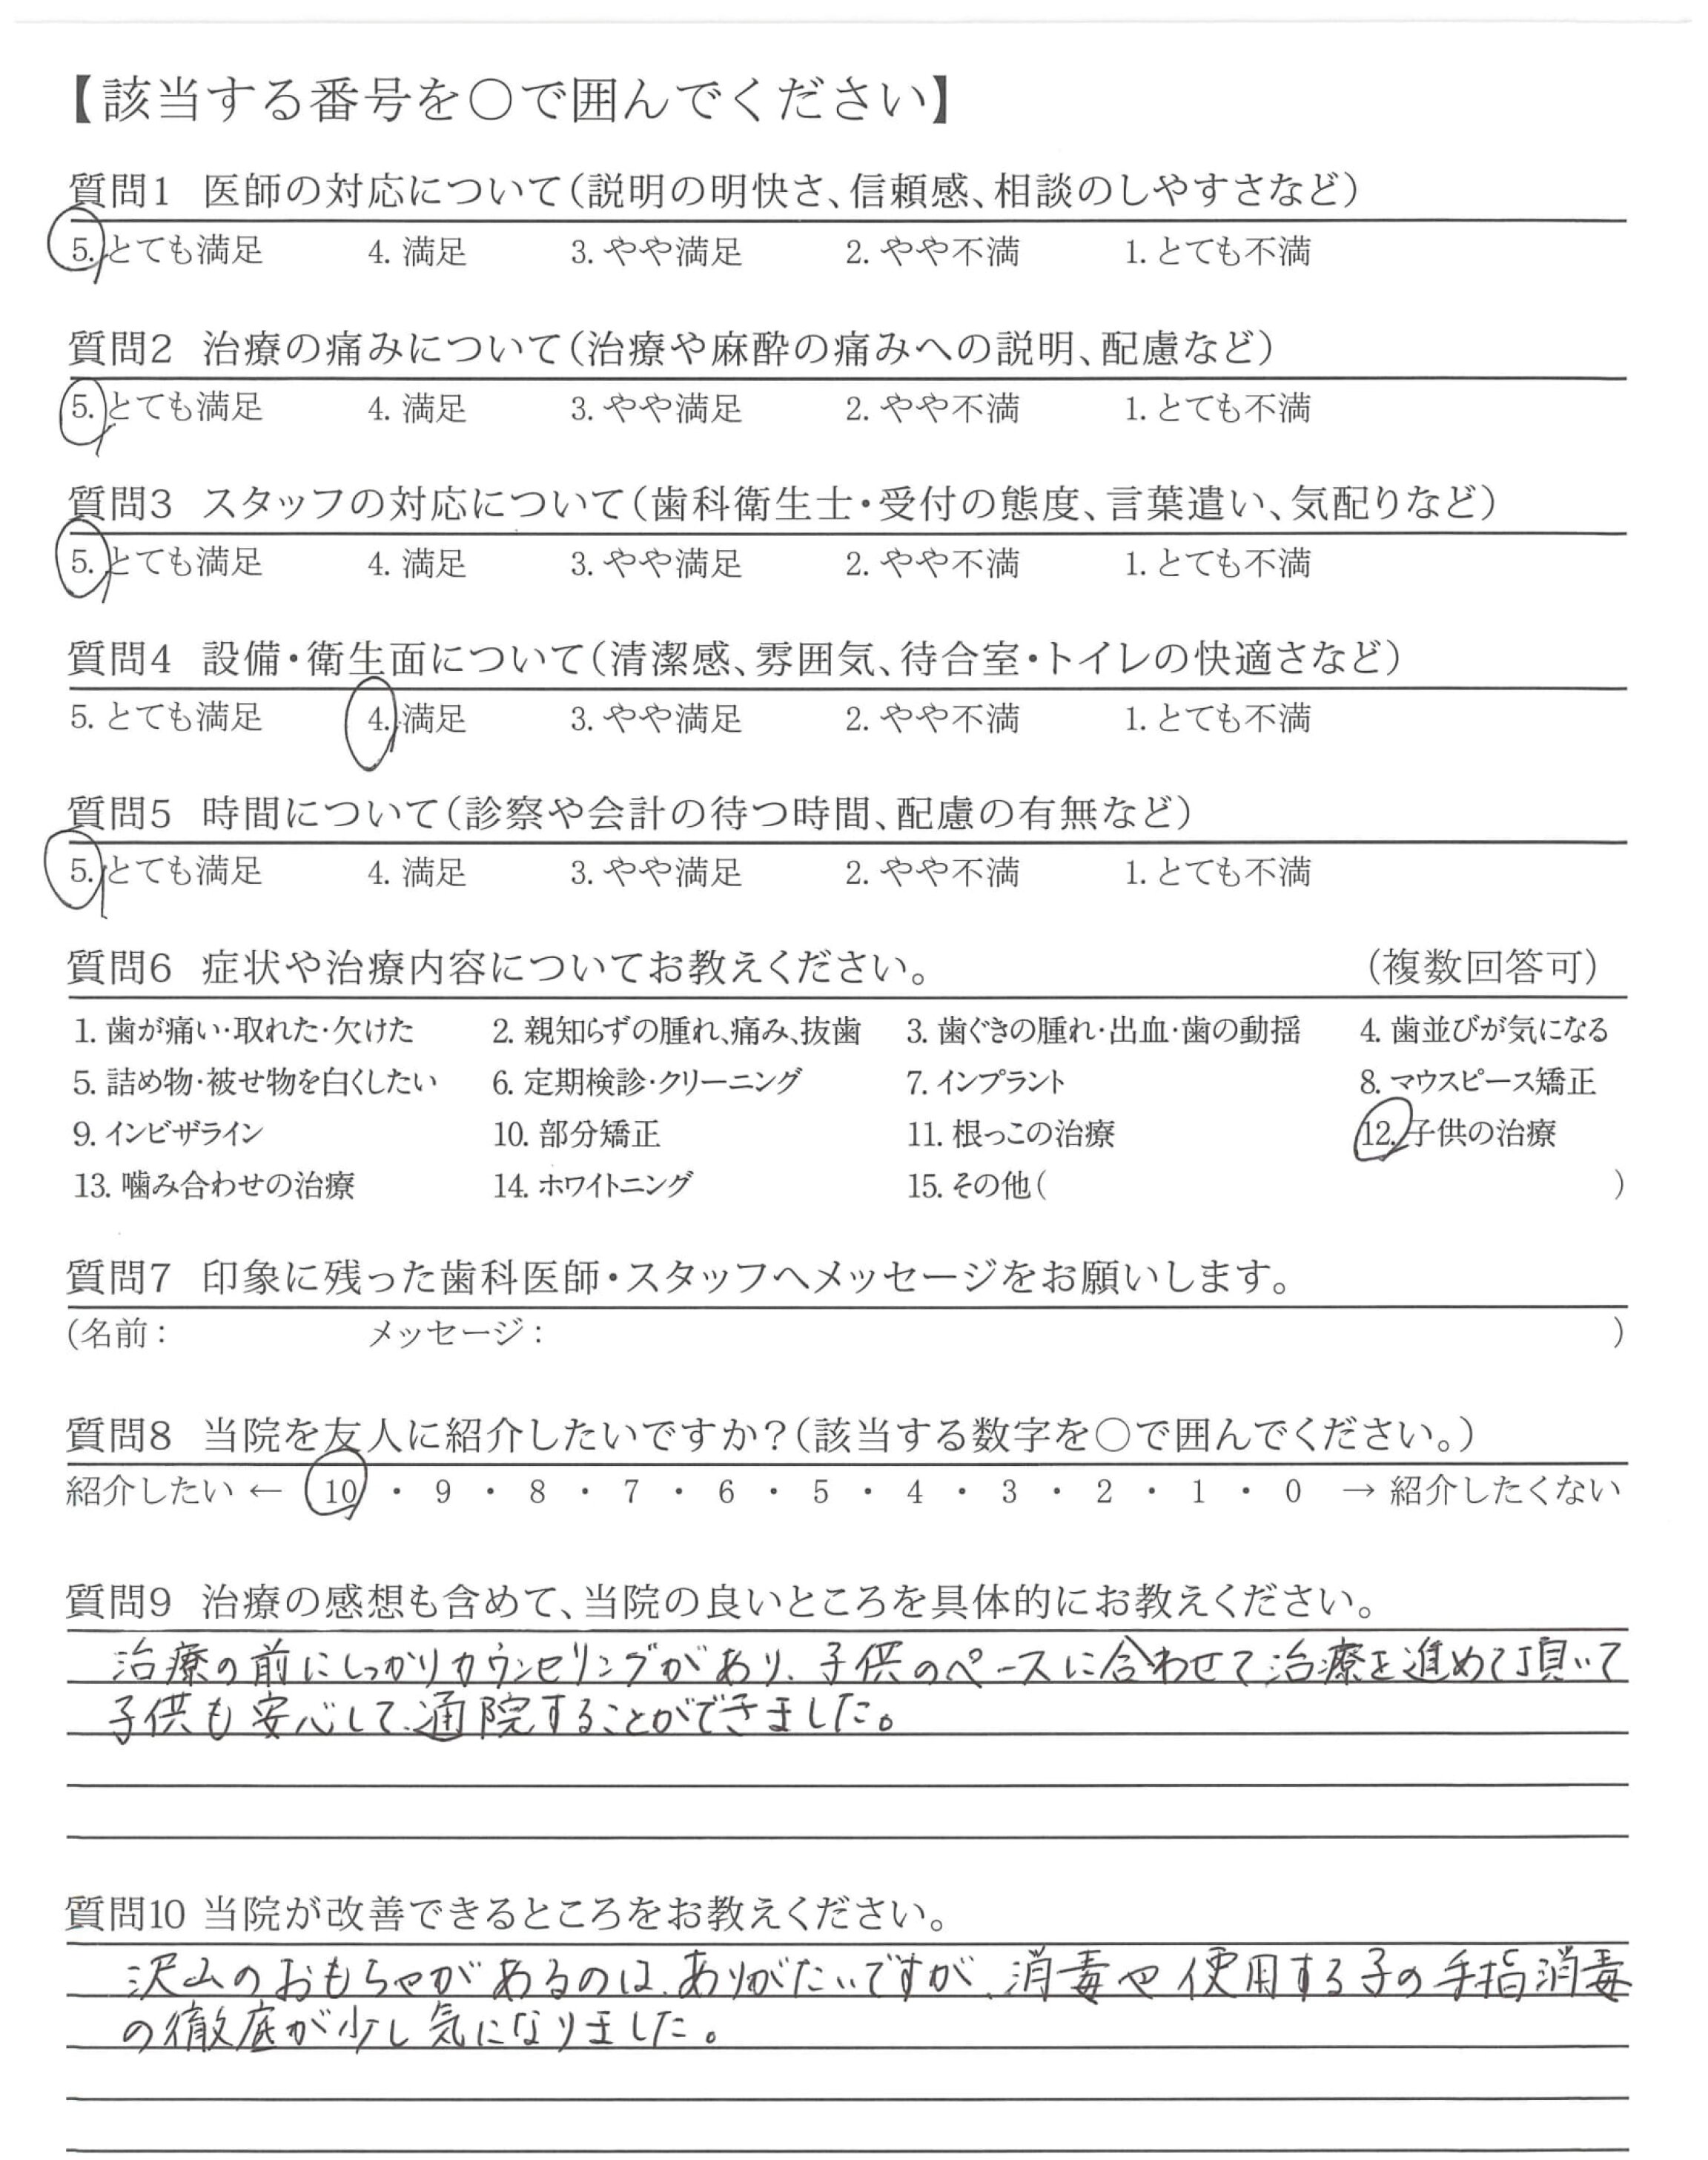 【該当する番号を○で囲んでください】
質問1 医師の対応について(説明の明快さ、信頼感、相談のしやすさなど)
5. とても満足 4. 満足 3. やや満足 2. やや不満 1. とても不満
質問2 治療の痛みについて(治療や麻酔の痛みへの説明、配慮など)
5. とても満足 4. 満足 3. やや満足 2. やや不満 1. とても不満
質問3 スタッフの対応について(歯科衛生士・受付の態度、言葉遣い、気配りなど)
5. とても満足 4. 満足 3. やや満足 2. やや不満 1. とても不満
質問4 設備・衛生面について(清潔感、雰囲気、待合室・トイレの快適さなど)
5. とても満足 4. 満足 3. やや満足 2. やや不満 1. とても不満
質問5 時間について(診察や会計の待つ時間、配慮の有無など)
5. とても満足 4. 満足 3. やや満足 2. やや不満 1. とても不満
質問6 症状や治療内容についてお教えください。 (複数回答可)
1. 歯が痛い・取れた・欠けた 2. 親知らずの腫れ、痛み、抜歯 3. 歯ぐきの腫れ・出血・歯の動揺 4. 歯並びが気になる
5. 詰め物・被せ物を白くしたい 6. 定期検診・クリーニング 7. インプラント 8. マウスピース矯正
9. インビザライン 10. 部分矯正 11. 根っこの治療 12. 子供の治療
13. 噛み合わせの治療 14. ホワイトニング 15. その他( )
質問7 印象に残った歯科医師・スタッフへメッセージをお願いします。
(名前: メッセージ: )
質問8 当院を友人に紹介したいですか?(該当する数字を○で囲んでください。)
紹介したい ← 10 ・ 9 ・ 8 ・ 7 ・ 6 ・ 5 ・ 4 ・ 3 ・ 2 ・ 1 ・ 0 → 紹介したくない
質問9 治療の感想も含めて、当院の良いところを具体的にお教えください。
治療の前にしっかりカウンセリングがあり、子供のペースに合わせて治療を進めて頂いて
子供も安心して、通院することができました。
質問10 当院が改善できるところをお教えください。
沢山のおもちゃがあるのは、ありがたいですが、消毒や使用する子の手指消毒
の徹底が少し気になりました。